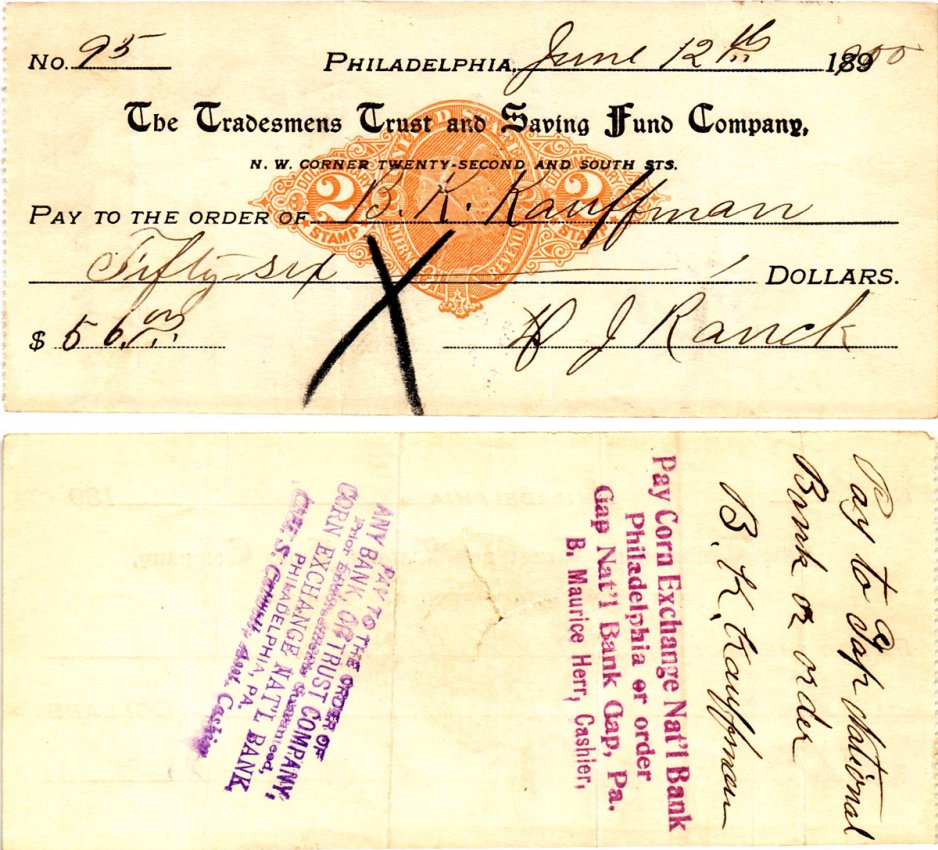 No. 95 PHILADELPHIA, June 12th 1900
The Tradesmens Trust and Saving Fund Company,
N. W. CORNER TWENTY-SECOND AND SOUTH STS.
UNITED STATES
DOCUMENTARY
2 2
STAMP STAMP
INTERNAL REVENUE
PAY TO THE ORDER OF B. K. Kauffman
Fifty-six DOLLARS.
$ 56.00 J Ranck
Pay to Gap National
Bank or order
B. K. Kauffman
Pay Corn Exchange Nat'l Bank
Philadelphia or order
Gap Nat'l Bank Gap, Pa.
B. Maurice Herr, Cashier,
PAY TO THE ORDER OF
ANY BANK OR TRUST COMPANY,
Prior Endorsements Guaranteed,
CORN EXCHANGE NAT'L BANK,
PHILADELPHIA, PA.
Asst. Cashier